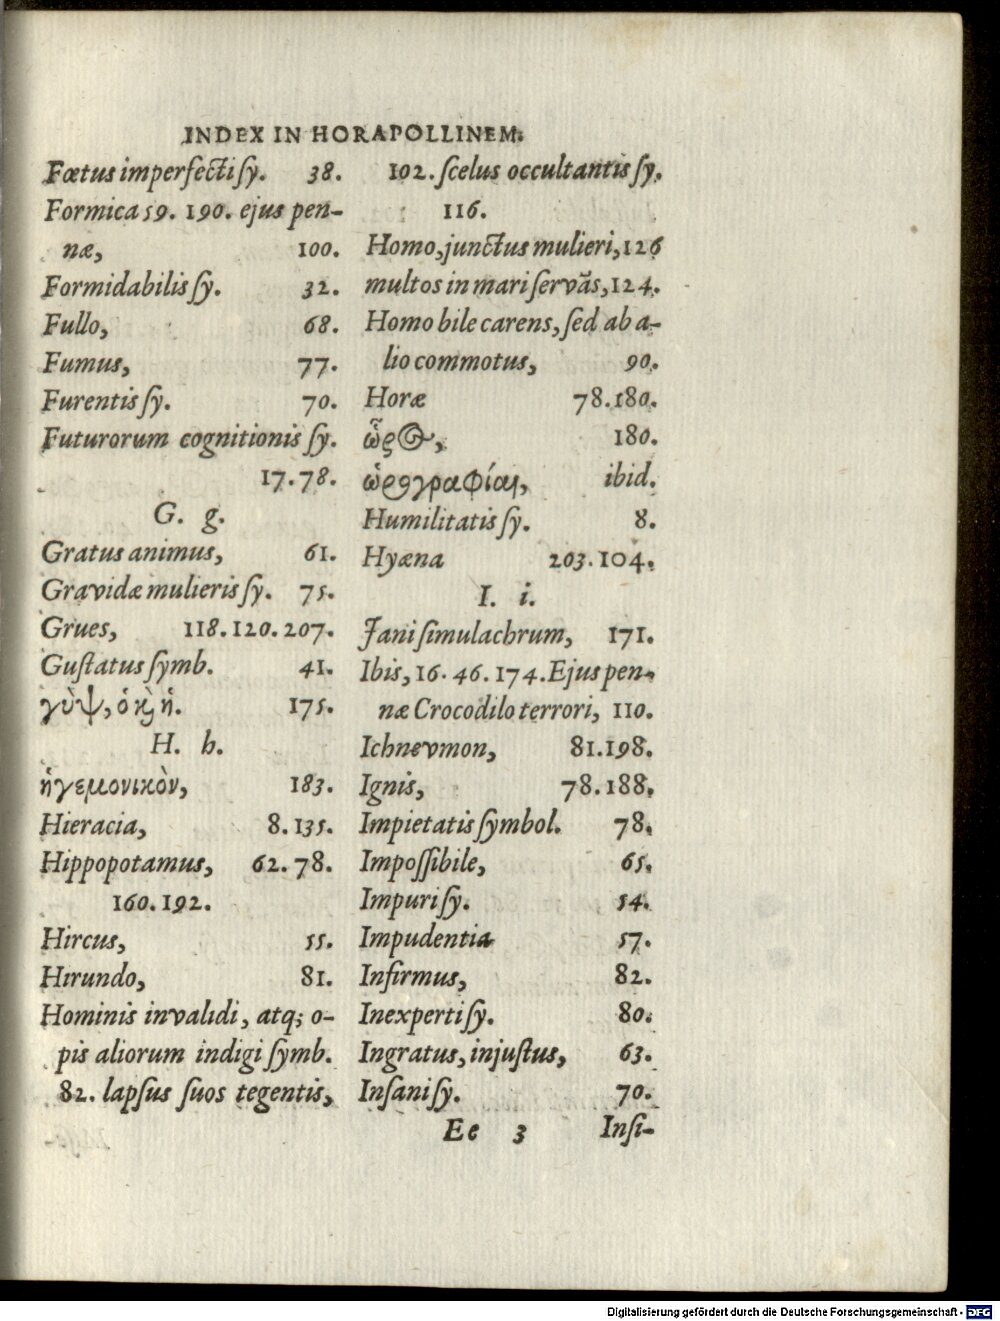 INDEX IN HORAPOLLINEM.
Fœtus imperfecti ſy. 38.
Formica 59. 190. ejus pen-
næ, 100.
Formidabilis ſy. 32.
Fullo, 68.
Fumus, 77.
Furentis ſy. 70.
Futurorum cognitionis ſy.
17. 78.
G. g.
Gratus animus, 61.
Gravidæ mulieris ſy. 75.
Grues, 118. 120. 207.
Guſtatus ſymb. 41.
γὺψ, ὁ κ ἡ. 175.
H. h.
ἡγεμονικὸν, 183.
Hieracia, 8. 135.
Hippopotamus, 62. 78.
160. 192.
Hircus, 55.
Hirundo, 81.
Hominis invalidi, atq; o-
pis aliorum indigi ſymb.
82. lapſus ſuos tegentis,
102. ſcelus occultantis ſy.
116.
Homo, junctus mulieri, 126
multos in mari ſervās, 124.
Homo bile carens, ſed ab a-
lio commotus, 90.
Horæ 78. 180.
ὧρος, 180.
ὡρογραφίαι, ibid.
Humilitatis ſy. 8.
Hyæna 203. 104.
I. i.
Jani ſimulachrum, 171.
Ibis, 16. 46. 174. Ejus pen-
næ Crocodilo terrori, 110.
Ichnevmon, 81. 198.
Ignis, 78. 188.
Impietatis ſymbol. 78.
Impoſſibile, 65.
Impuri ſy. 54.
Impudentia 57.
Infirmus, 82.
Inexperti ſy. 80.
Ingratus, injuſtus, 63.
Inſani ſy. 70.
Ee 3 Inſi-
Digitalisierung gefördert durch die Deutsche Forschungsgemeinschaft - DFG